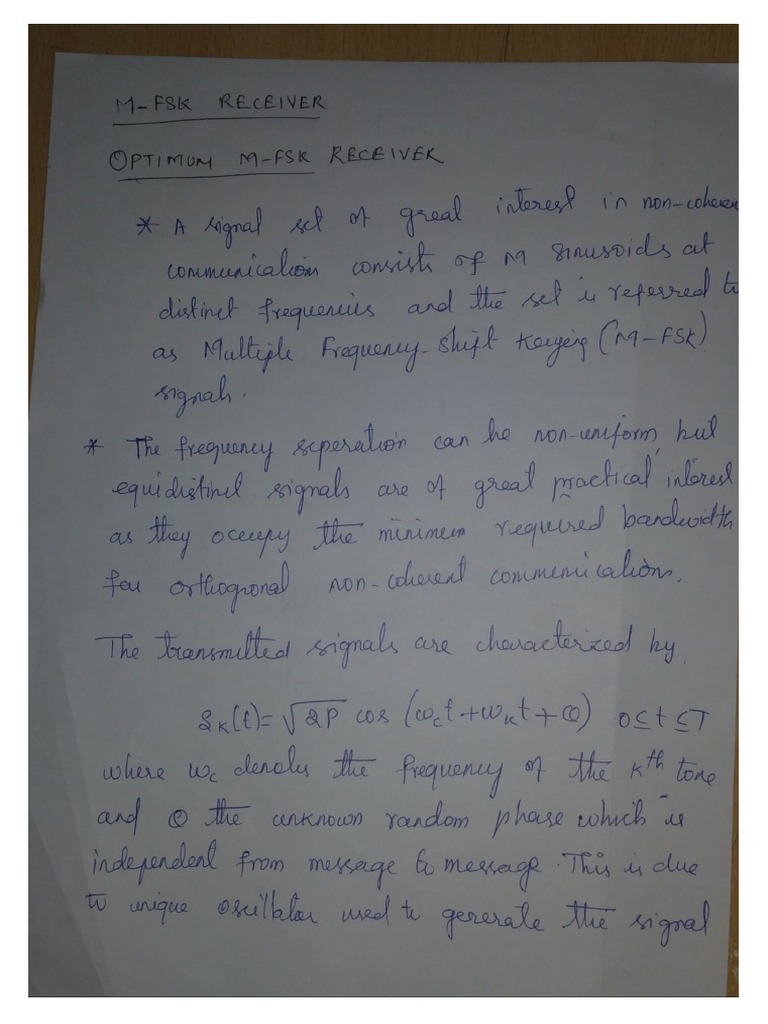 M-FSK RECEIVER
OPTIMUM M-FSK RECEIVER
* A signal set of great interest in non-coheren
communication consists of M sinusoids at
distinct frequencies and the set is referred to
as Multiple Frequency-Shift Keying (M-FSK)
signals.
* The frequency seperation can be non-uniform, but
equidistinct signals are of great practical interest
as they occupy the minimum required bandwidth
for orthogonal non-coherent communications.
The transmitted signals are characterized by
S_K(t) = √2P cos (ω_c t + ω_K t + Θ) 0 ≤ t ≤ T
where ω_c denotes the frequency of the K^th tone
and Θ the unknown random phase which is
independent from message to message. This is due
to unique oscillator used to generate the signal